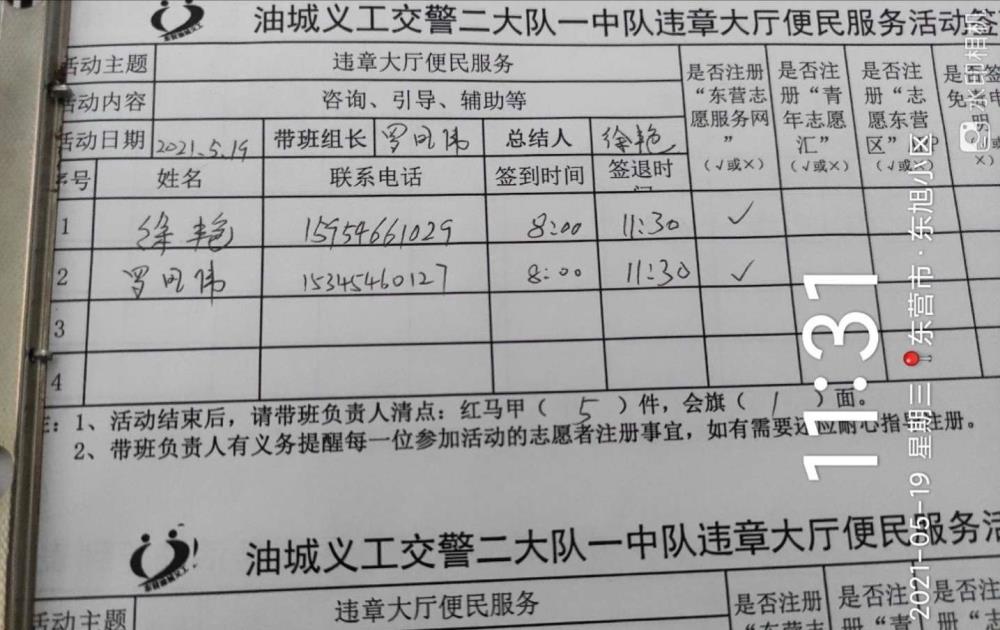 油城义工交警二大队一中队违章大厅便民服务活动签
活动主题 违章大厅便民服务 是否注册“东营志愿服务网”(√或×) 是否注册“青年志愿汇”(√或×) 是否注册“志愿东营 区”(√或×) 是否签
活动内容 咨询、引导、辅助等
活动日期 2021.5.19 带班组长 总结人 徐艳
序号 姓名 联系电话 签到时间 签退时间
1 徐艳 15954661029 8:00 11:30 ✓
2 15345460127 8:00 11:30 ✓
3
4
注：1、活动结束后，请带班负责人清点：红马甲（ 5 ）件，会旗（ 1 ）面。
2、带班负责人有义务提醒每一位参加活动的志愿者注册事宜，如有需要还应耐心指导注册。
油城义工交警二大队一中队违章大厅便民服务活
活动主题 违章大厅便民服务 是否注册“东营志 是否注册“青 是否注册“志
水印相机
11:31
2021-05-19 星期三 东营市·东旭小区